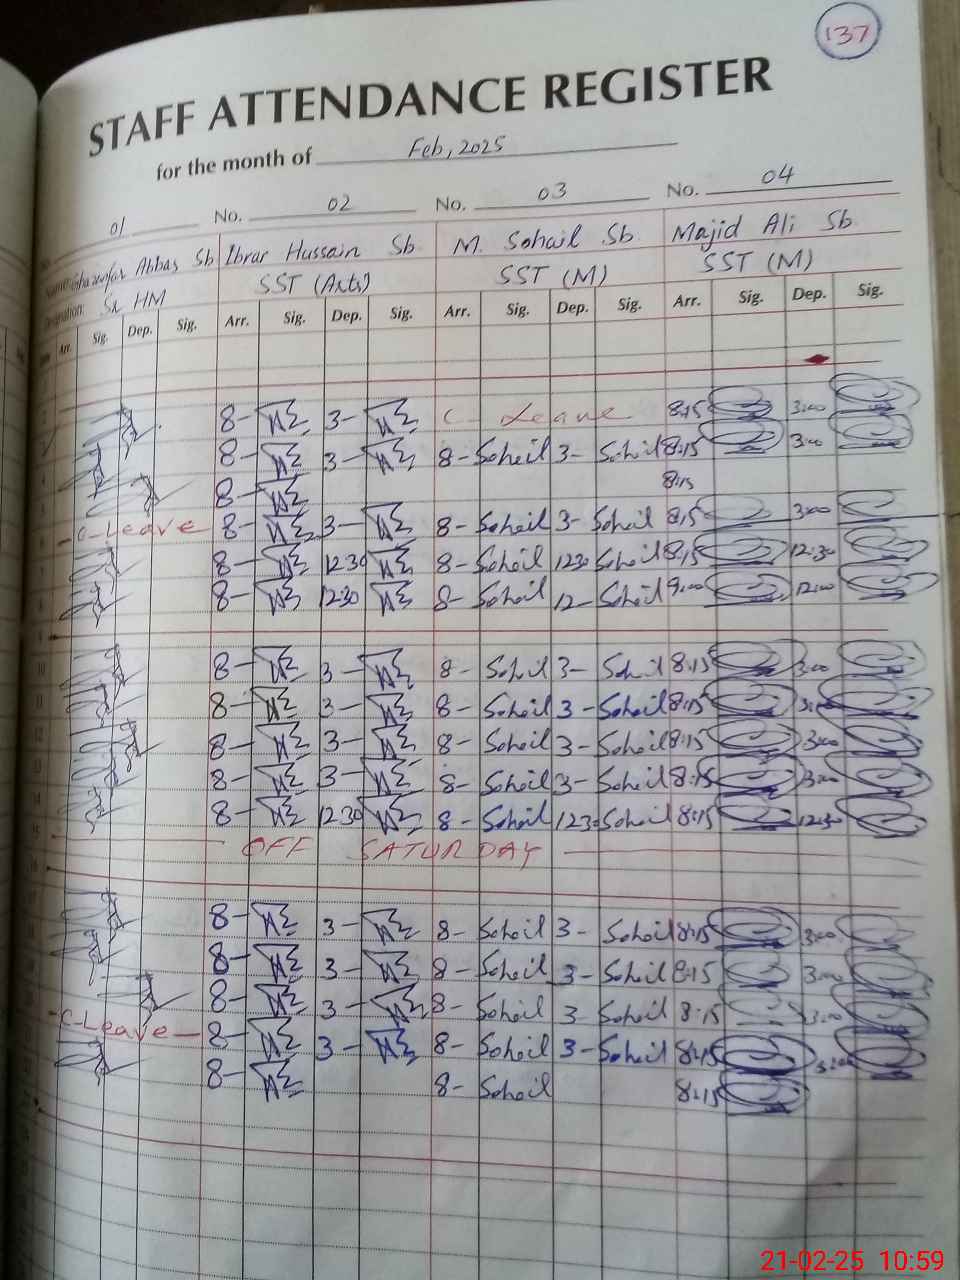 137
STAFF ATTENDANCE REGISTER
for the month of Feb, 2025
01 No. 02 No. 03 No. 04
Abbas Sb Ibrar Hussain Sb M. Sohail Sb Majid Ali Sb
Sr HM SST (Arts) SST (M) SST (M)
Arr. Sig. Dep. Sig. Arr. Sig. Dep. Sig. Arr. Sig. Dep. Sig. Arr. Sig. Dep. Sig.
8- 3- C- Leave 8:15 3:00
8- 3- 8- Soheil 3- Soheil 8:15 3:00
8- 8:15
C-Leave- 8- 3- 8- Soheil 3- Soheil 8:15 3:00
8- 12:30 8- Soheil 12:30 Soheil 8:15 12:30
8- 12:30 8- Soheil 12- Soheil 9:00 12:00
8- 3- 8- Soheil 3- Soheil 8:15 3:00
8- 3- 8- Soheil 3- Soheil 8:15 3:00
8- 3- 8- Soheil 3- Soheil 8:15 3:00
8- 3- 8- Soheil 3- Soheil 8:15 3:00
8- 12:30 8- Soheil 12:30 Soheil 8:15 12:30
OFF SATURDAY
8- 3- 8- Soheil 3- Soheil 8:15 3:00
8- 3- 8- Soheil 3- Soheil 8:15 3:00
8- 3- 8- Soheil 3- Soheil 8:15 3:00
C-Leave- 8- 3- 8- Soheil 3- Soheil 8:15 3:00
8- 8- Soheil 8:15
21-02-25 10:59